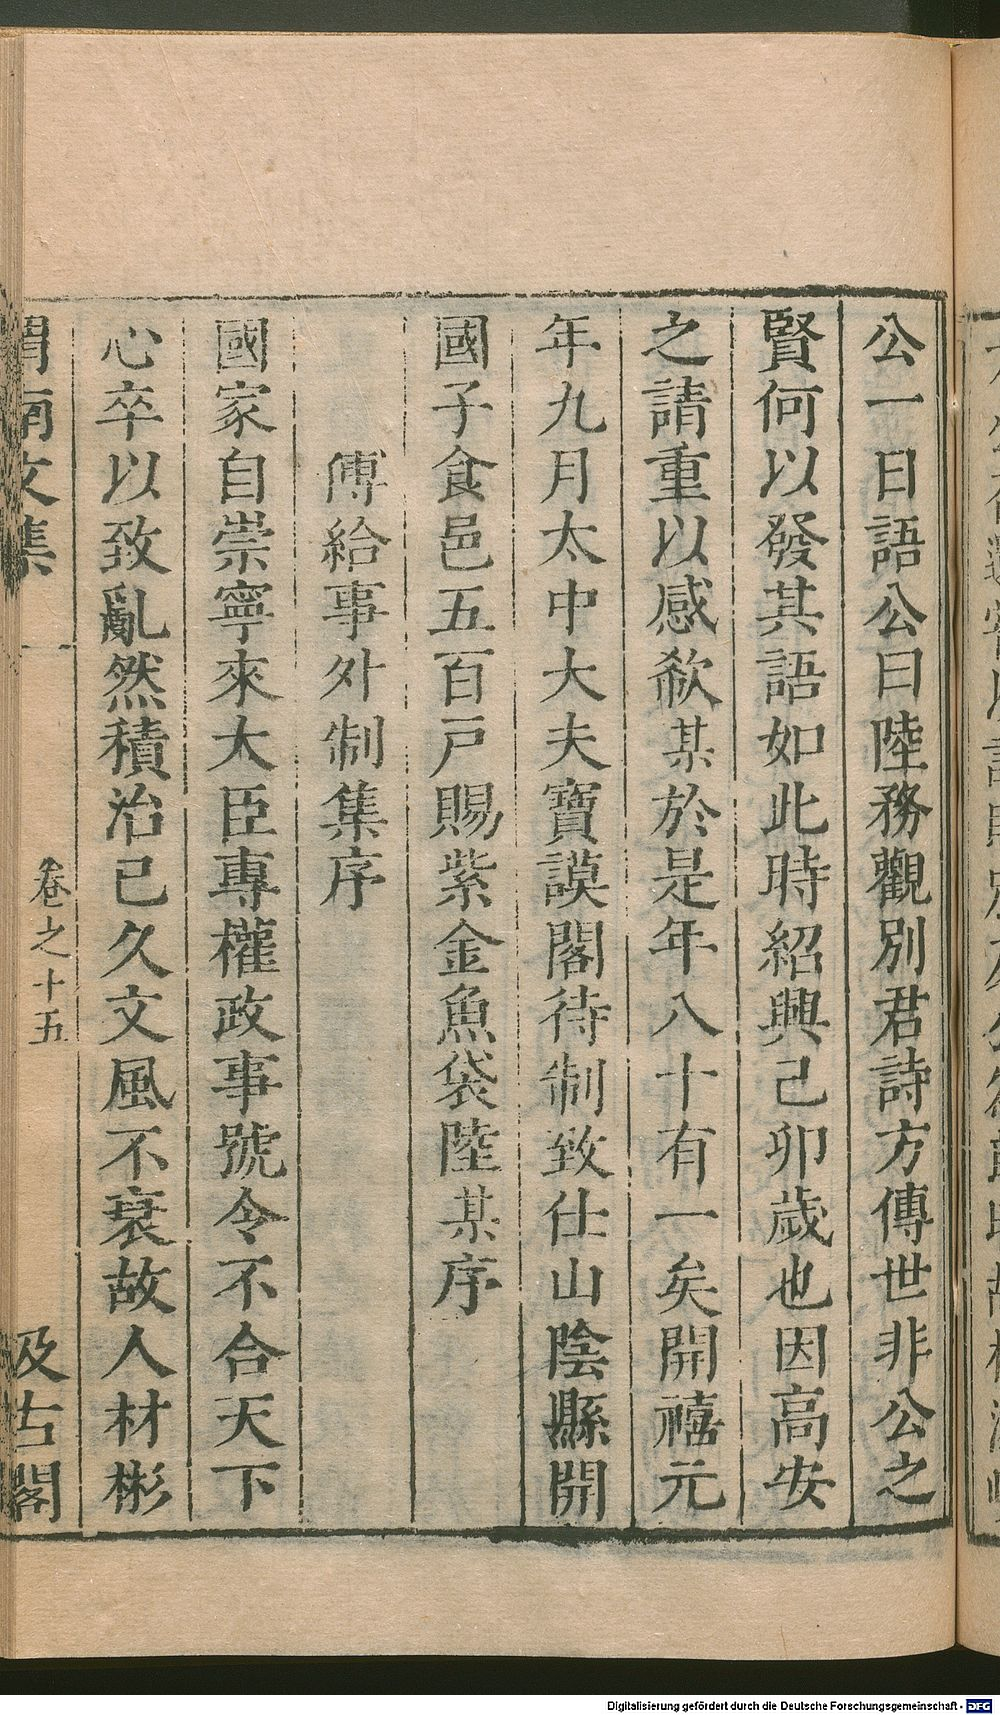 公一日語公曰陸務觀別君詩方傳世非公之
賢何以發其語如此時紹興己卯歲也因高安
之請重以感欷某於是年八十有一矣開禧元
年九月太中大夫寶謨閣待制致仕山陰縣開
國子食邑五百戸賜紫金魚袋陸某序
傅給事外制集序
國家自崇寧來大臣專權政事號令不合天下
心卒以致亂然積治已久文風不衰故人材彬
渭南文集
卷之十五
汲古閣
Digitalisierung gefördert durch die Deutsche Forschungsgemeinschaft - DFG